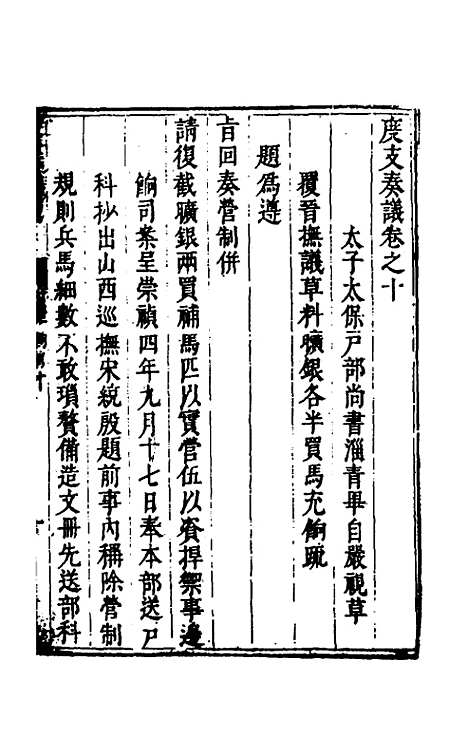 度支奏議卷之十
太子太保戸部尚書淄青畢自嚴視草
覆晉撫議草料曠銀各半買馬充餉疏
題爲遵
旨回奏營制併
請復截曠銀兩買補馬匹以實營伍以資捍禦事邊
餉司案呈崇禎四年九月十七日奉本部送戸
科抄出山西巡撫宋統殷題前事內稱除營制
規則兵馬細數不敢瑣贅備造文冊先送部科